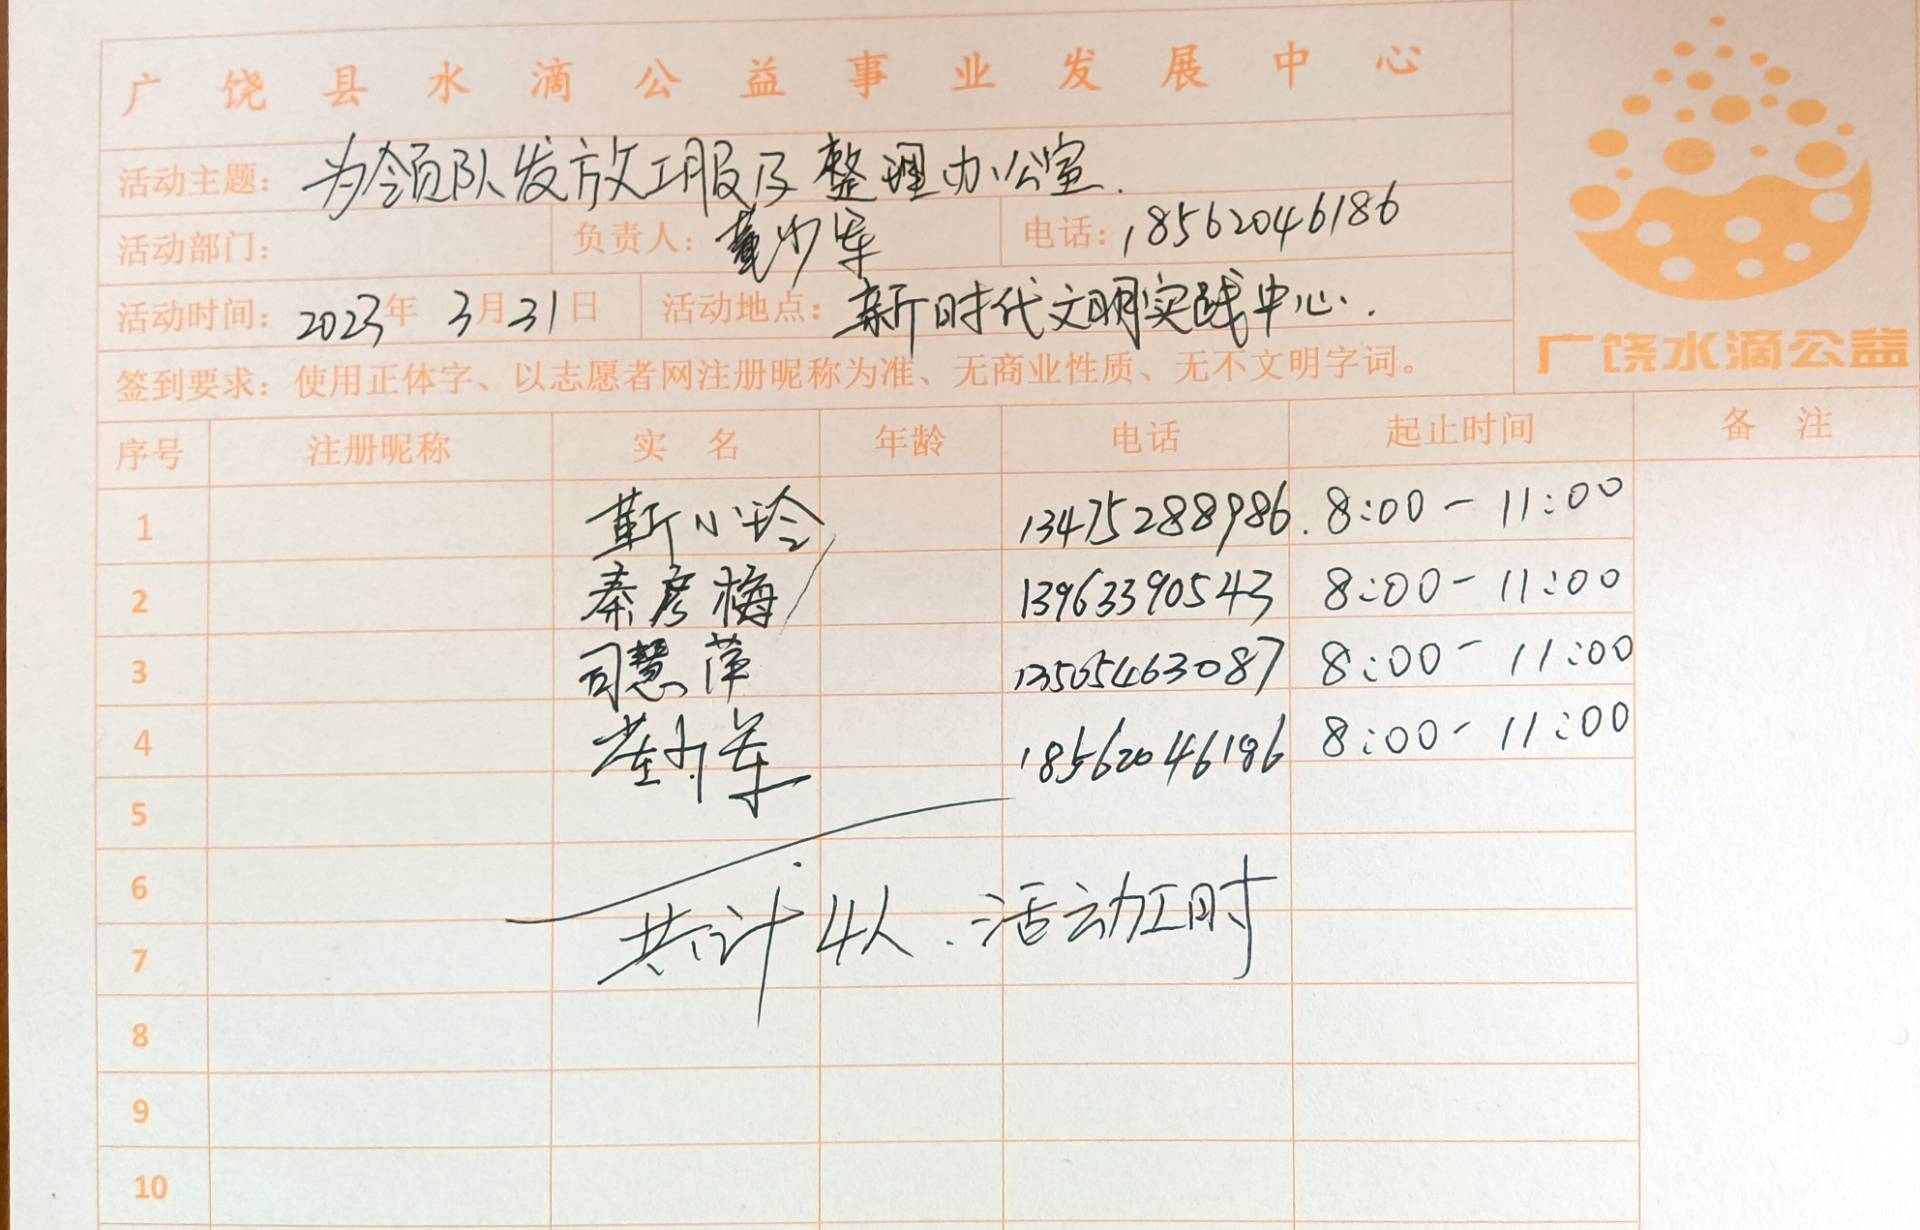 广饶县水滴公益事业发展中心
活动主题：为领队发放工服及整理办公室.
活动部门： 负责人：董少军 电话：18562046186
活动时间：2023年3月31日 活动地点：新时代文明实践中心.
广饶水滴公益
签到要求：使用正体字、以志愿者网注册昵称为准、无商业性质、无不文明字词。
序号 注册昵称 实名 年龄 电话 起止时间 备注
1 靳小玲 13475288986. 8:00-11:00
2 秦彦梅 13963390543 8:00-11:00
3 司慧萍 13565463087 8:00-11:00
4 董少军 18562046186 8:00-11:00
5
6
共计4人.活动工时
7
8
9
10